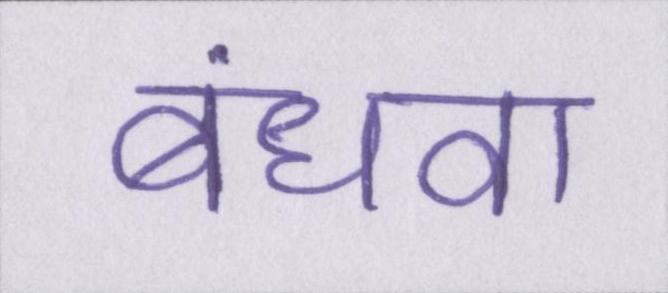 बंधवा